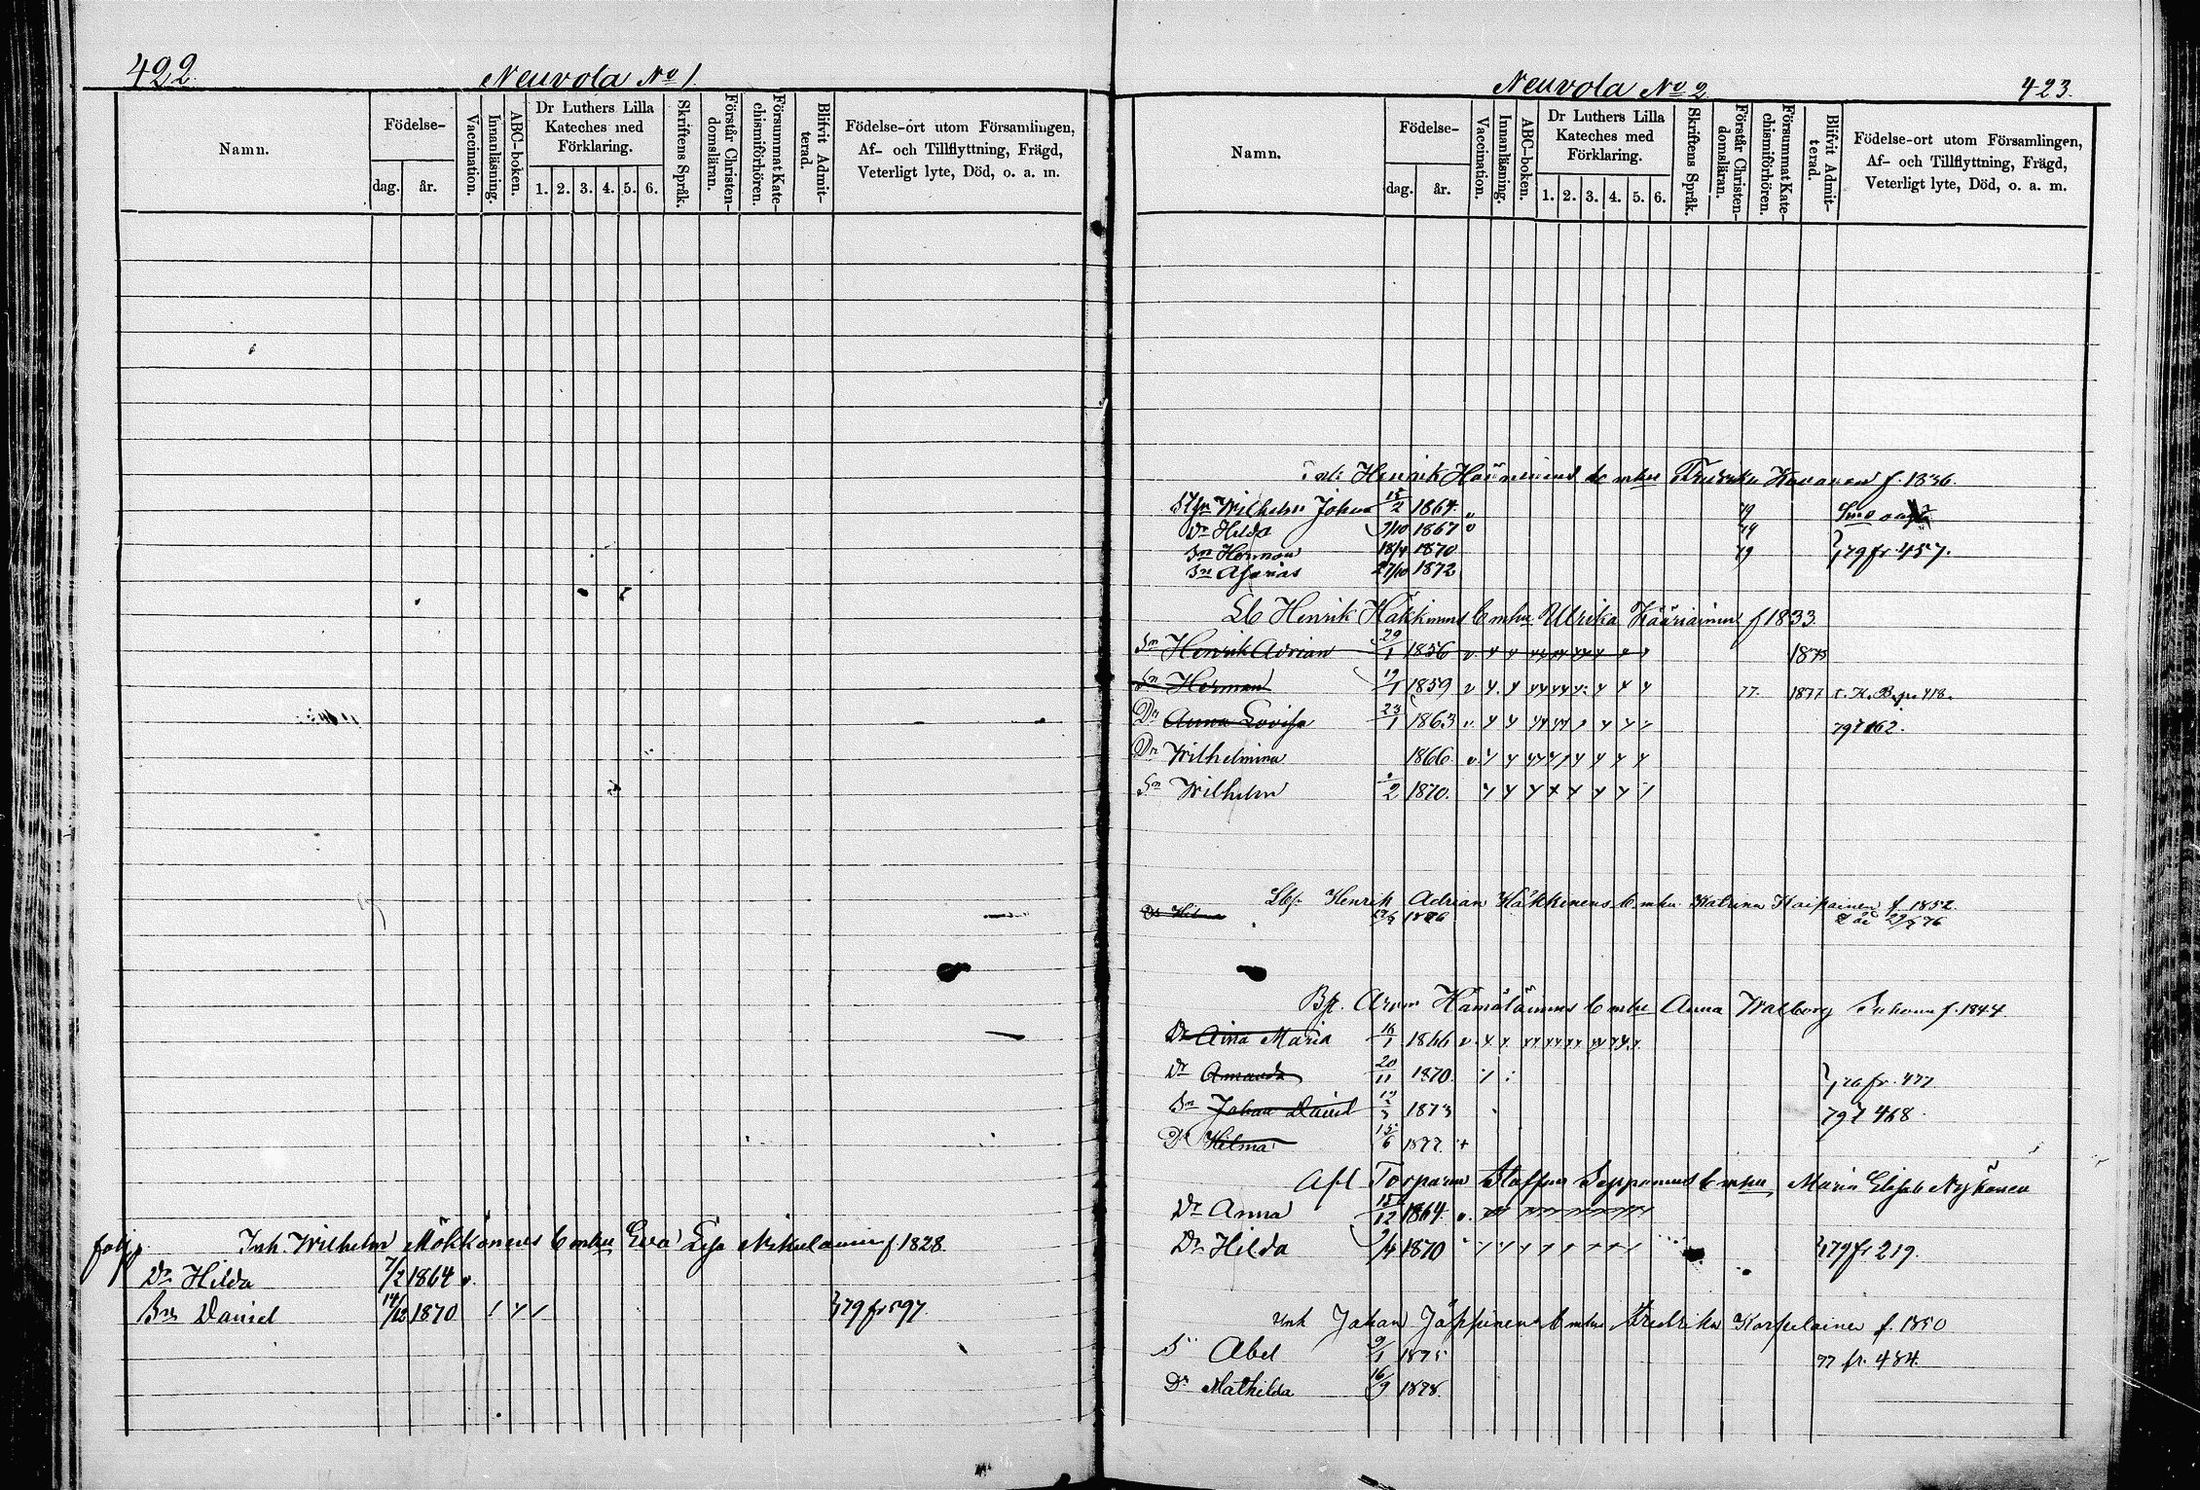 422.
Neuvola No 1.
Namn.
Födelse-
dag. år.
Vaccination.
Innanläsning.
ABC-boken.
Dr Luthers Lilla Kateches med Förklaring.
1. 2. 3. 4. 5. 6.
Skriftens Språk.
Förstår Christen-domsläran.
Försummat Kate-chismiförhören.
Blifvit Admit-terad.
Födelse-ort utom Församlingen,
Af- och Tillflyttning, Frägd,
Veterligt lyte, Död, o. a. m.
Inh. Wilhelm Mökkönens f. 1828.
Dr Hilda 7/2 1864
Sn Daniel 14/12 1870 79 fr 597.
Neuvola No 2
423.
Namn.
Födelse-
dag. år.
Vaccination.
Innanläsning.
ABC-boken.
Dr Luthers Lilla Kateches med Förklaring.
1. 2. 3. 4. 5. 6.
Skriftens Språk.
Förstår Christen-domsläran.
Försummat Kate-chismiförhören.
Blifvit Admit-terad.
Födelse-ort utom Församlingen,
Af- och Tillflyttning, Frägd,
Veterligt lyte, Död, o. a. m.
Henrik f. 1836.
Wilhelm Johan 15/2 1864. 79
Dr Hilda 7/10 1867 79
Sn Herman 18/4 1870 79 79 fr. 457.
Sn Asarias 27/10 1872
Lb Henrik Häkkinens Ulrika Kääriäinen f 1833
Sn Henrik Adrian 29/1 1856 1875
Sn Herman 19/1 1859 77. 1877
Dr Anna Lovisa 23/1 1863
Dr Wilhelmina 1866
Sn Wilhelm /2 1870.
Henrik Adrian Häkkinens Katrina Kaipainen f. 1852
1876
Anna Walborg f. 1844
Dr Aina Maria 16/1 1866
Dr Amanda 20/11 1870. fr. 477
Sn Johan Daniel 1873 79 t 468.
Dr Hilma 15/6 1877
Afl Torparen Staffan Seppänens Maria Elisab Nykänen
Dr Anna 15/12 1864.
Dr Hilda 9/4 1870 79 fr 219.
Johan Jäppinens Fredrika Korpelainen f. 1850
S Abel 9/1 1875 77 fr. 484.
Dr Mathilda 16/9 1878.